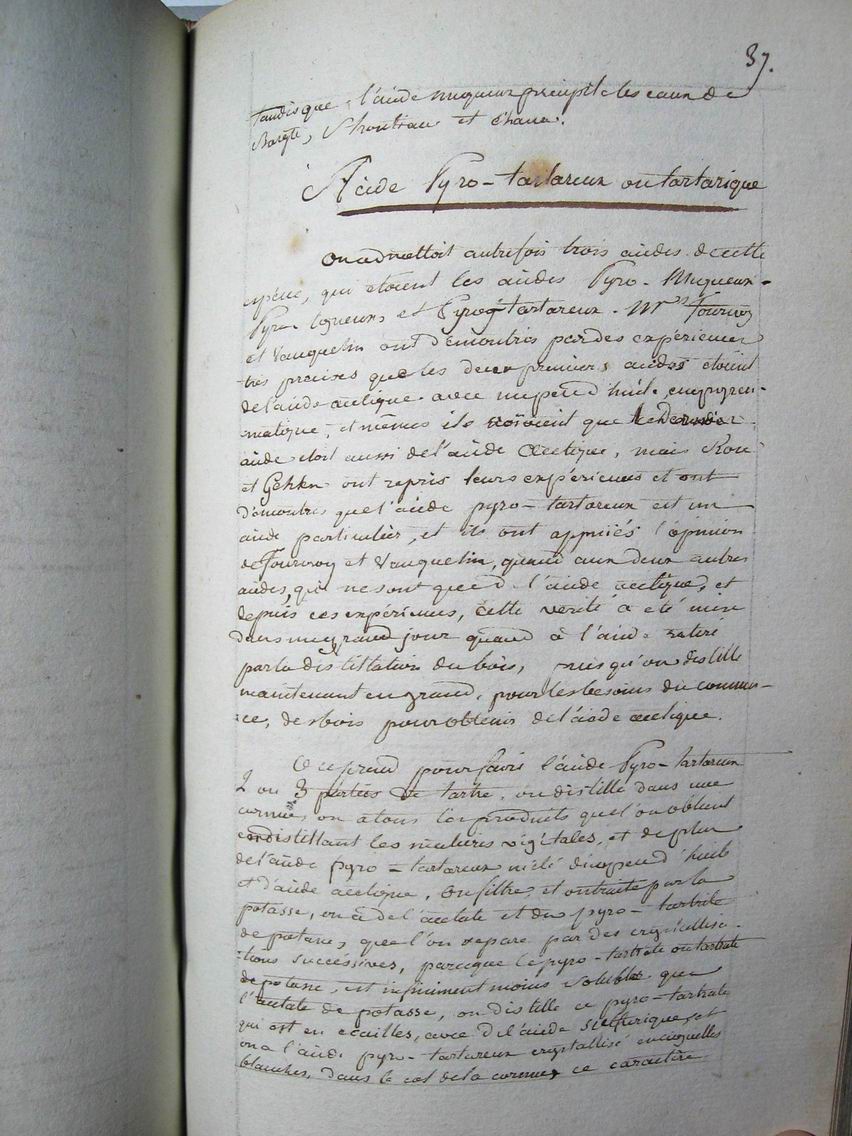 37.
tandisque l'acide muqueux précipite les eaux de
Baryte, Strontiane et Chaux.
Acide Pyro-tartareux ou tartarique
On admettoit autrefois trois acides de cette
espèce, qui etoient les acides Pyro-Muqueux-
Pyro-ligneux et Pyro-tartareux. Mr Fourcroy
et Vauquelin ont démontrés par des expériences
très precises que les deux premiers acides étoient
de l'acide acetique avec un peu d'huile empyreu-
matique, et mêmes ils croioient que le dernier
acide etoit aussi de l'acide acetique, mais Rose
et Gehlen ont repris leurs expériences et ont
démontrés que l'acide pyro-tartareux est un
acide particulier, et ils ont appuiés l'opinion
de Fourcroy et Vauquelin, quand aux deux autres
acides, qui ne sont que de l'acide acetique, et
depuis ces expériences, cette verité a eté mise
dans un grand jour quand à l'acide retiré
par la distillation du bois, puisqu'on distille
maintenant en grand, pour les besoins du commer-
ce, des bois pour obtenir de l'acide acetique.
On prend pour faire l'acide Pyro-tartareux
2 ou 3 parties de tartre, on distille dans une
cornue, on a tous les produits que l'on obtient
en distillant les matieres végétales, et de plus
de l'acide pyro-tartareux mêlé d'un peu d'huile
et d'acide acetique. On filtre, et on traite par la
potasse, on a de l'acetate et du pyro-tartrite
de potasse, que l'on separe par des crystallisa-
tions successives, parceque le pyro-tartrite ou tartrate
de potasse, est infiniment moins soluble que
l'acetate de potasse, on distille ce pyro-tartrate
qui est en ecailles, avec de l'acide sulfurique, et
on a l'acide pyro-tartareux crystallisé en aiguilles
blanches, dans le col de la cornue, ce caractère